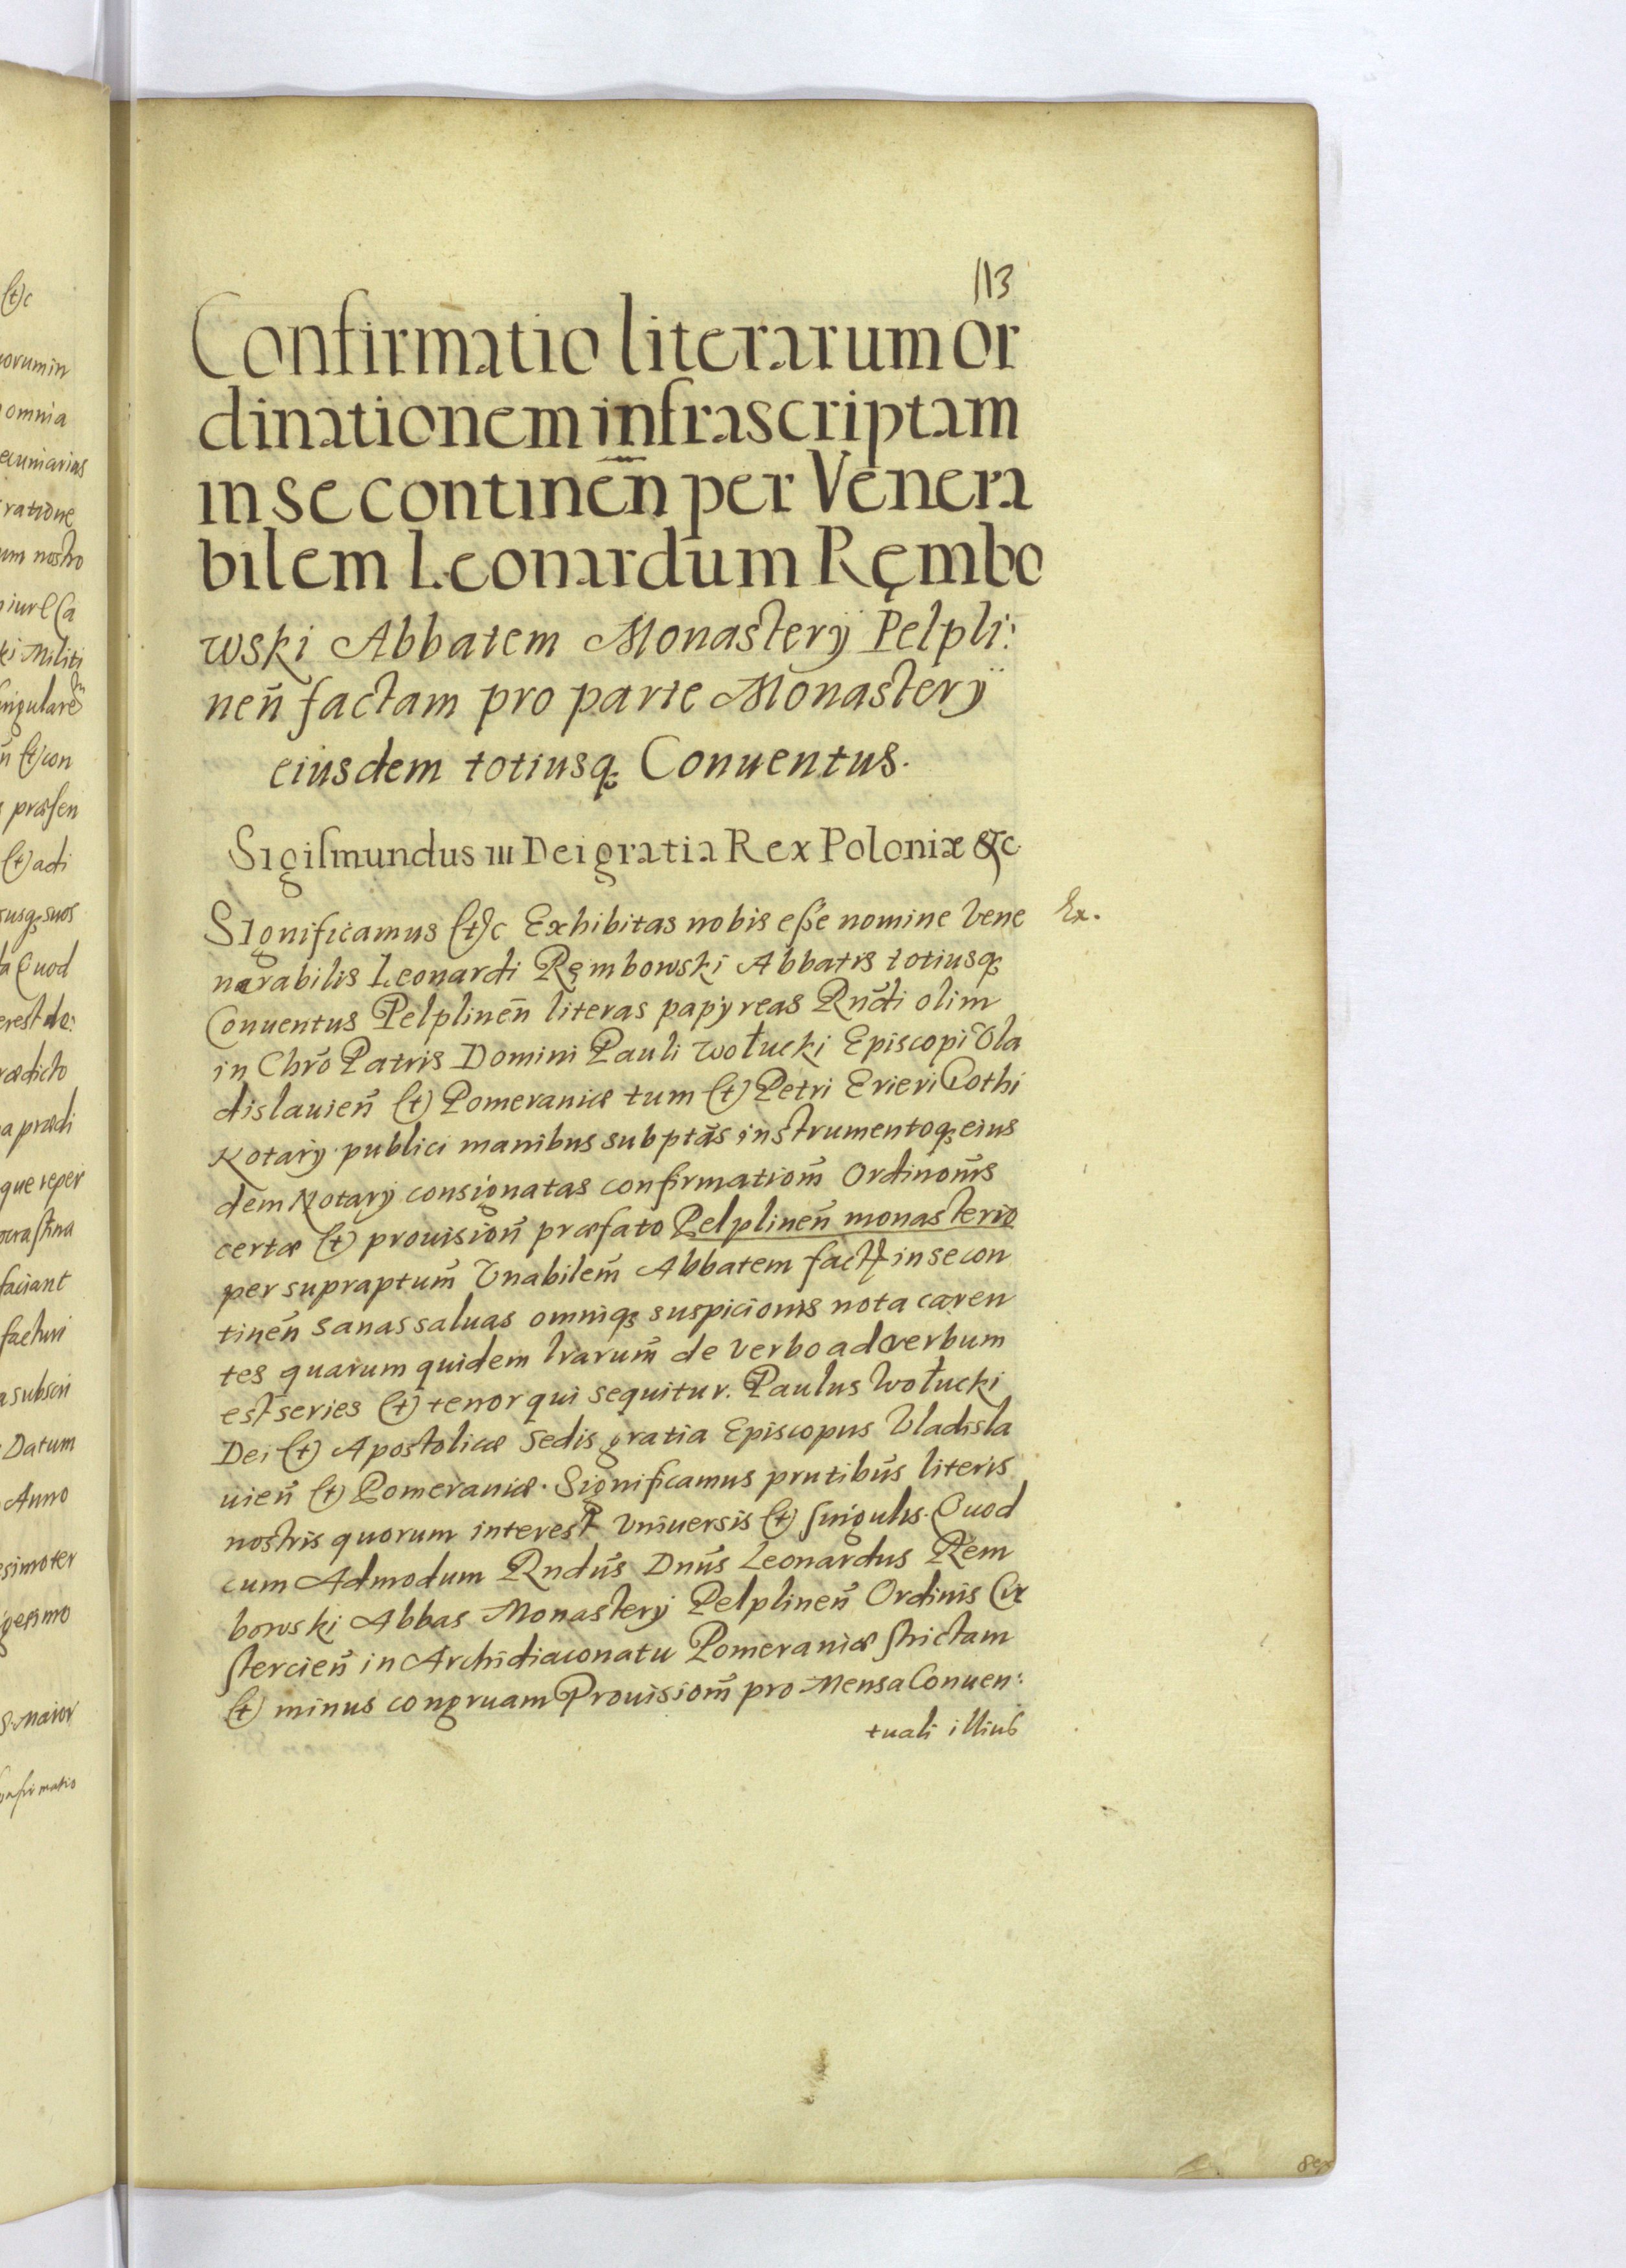 113
Confirmatio literarum or
dinationem infrascriptam
in se continen̄ per Venera
bilem Leonardum Rembo
wski Abbatem Monasterÿ Pelpli:
nen̄ factam pro parte Monasterÿ
eiusdem totiusq₃ Conuentus.
Sigiſmundus III Dei gratia Rex Poloniæ &c.
Significamus (t)c Exhibitas nobis eſse nomine Vene
Ex.
narabilis Leonardi Rembowski Abbatis totiusq₃
Conuentus Pelplinen̄ literas papyreas Rndi olim
in Chrō Patris Domini Pauli Wołucki Episcopi Vla
dislauien̄ (t) Pomeraniæ tum (t) Petri Erieri Cothi
Notarÿ publici manibus subptās instrumentoq₃ eius
dem Notarÿ consignatas confirmationm̄ Ordinonis
certæ (t) prouision̄ præfato Pelplinen̄ monasterio
per supraptum̄ Vnabilem̄ Abbatem fact in se con
tinen̄ sanas saluas omniq₃ suspicionis nota caren
tes quarum quidem lrarum̄ de verbo ad verbum
est series (t) tenor qui sequitur. Paulus Wołucki
Dei (t) Apostolicæ Sedis gratia Episcopus Vladisla
uien̄ (t) Pomeraniæ. Significamus prntibūs literis
nostris quorum interest Vniuersis (t) ſingulis. Quod
cum Admodum Rndūs Dnūs Leonardus Rem
bowski Abbas Monasterÿ Pelplinen̄ Ordinis Ci
ſtercien̄ in Archidiaconatu Pomeraniæ ſtrictam
(t) minus congruam Prouisionm̄ pro Mensa Conuen:
tuali illius